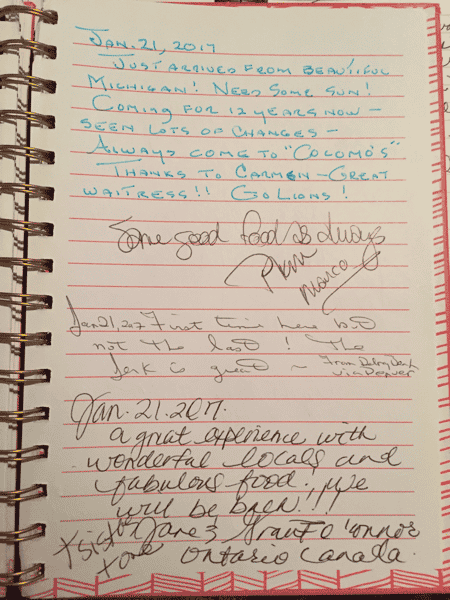 JAN. 21, 2017
JUST ARRIVED FROM BEAUTIFUL
MICHIGAN! NEED SOME SUN!
COMING FOR 12 YEARS NOW -
SEEN LOTS OF CHANGES -
ALWAYS COME TO "COLOMO'S"
THANKS TO CARMEN - GREAT
WAITRESS!! GO LIONS!
Same good food as always
Jan 21, 2017 First time here but
not the last! The
Jerk is great ~ From
via Denver
Jan. 21. 2017.
a great experience with
wonderful locals and
fabulous food!, We
will be back!!!
Jane & Grant O'Connor
+ one Ontario Canada.